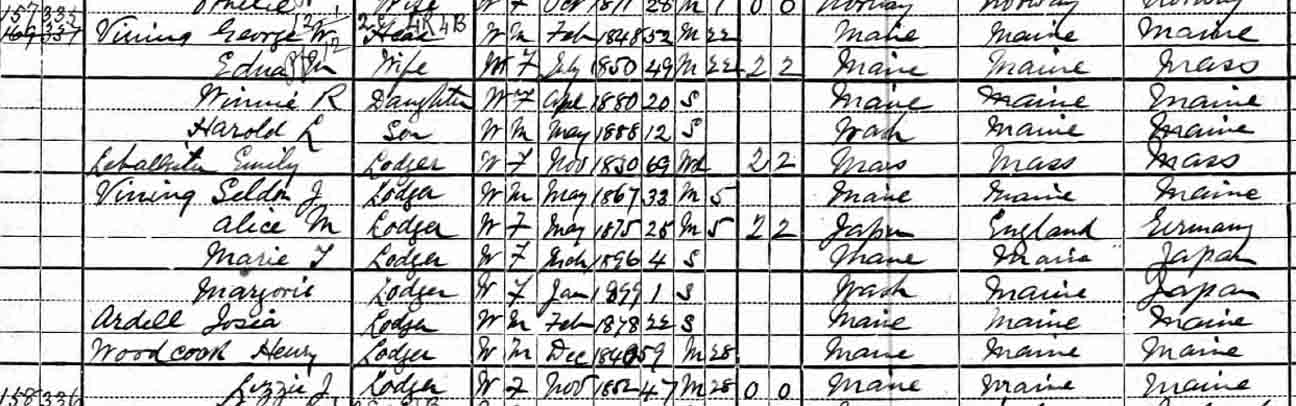 157 332 Wife W F Oct 1871 28 M 1 0 0 Norway Norway Norway
Vining George W Head W M Feb 1848 52 M 22 Maine Maine Maine
Edna M Wife W F July 1850 49 M 22 2 2 Maine Maine Mass
Winnie R Daughter W F Apl 1880 20 S Maine Maine Maine
Harold L Son W M May 1888 12 S Wash Maine Maine
Emily Lodger W F Nov 1830 69 Wd 2 2 Mass Mass Mass
Vining Seldon J Lodger W M May 1867 33 M 5 Maine Maine Maine
Alice M Lodger W F May 1875 25 M 5 2 2 Japan England Germany
Marie F Lodger W F Mch 1896 4 S Maine Maine Japan
Marjorie Lodger W F Jan 1899 1 S Wash Maine Japan
Ardell Josia Lodger W M Feb 1878 22 S Maine Maine Maine
Woodcook Henry Lodger W M Dec 1840 59 M 28 Maine Maine Maine
158 336 Lizzie J Lodger W F Nov 1852 47 M 28 0 0 Maine Maine Maine